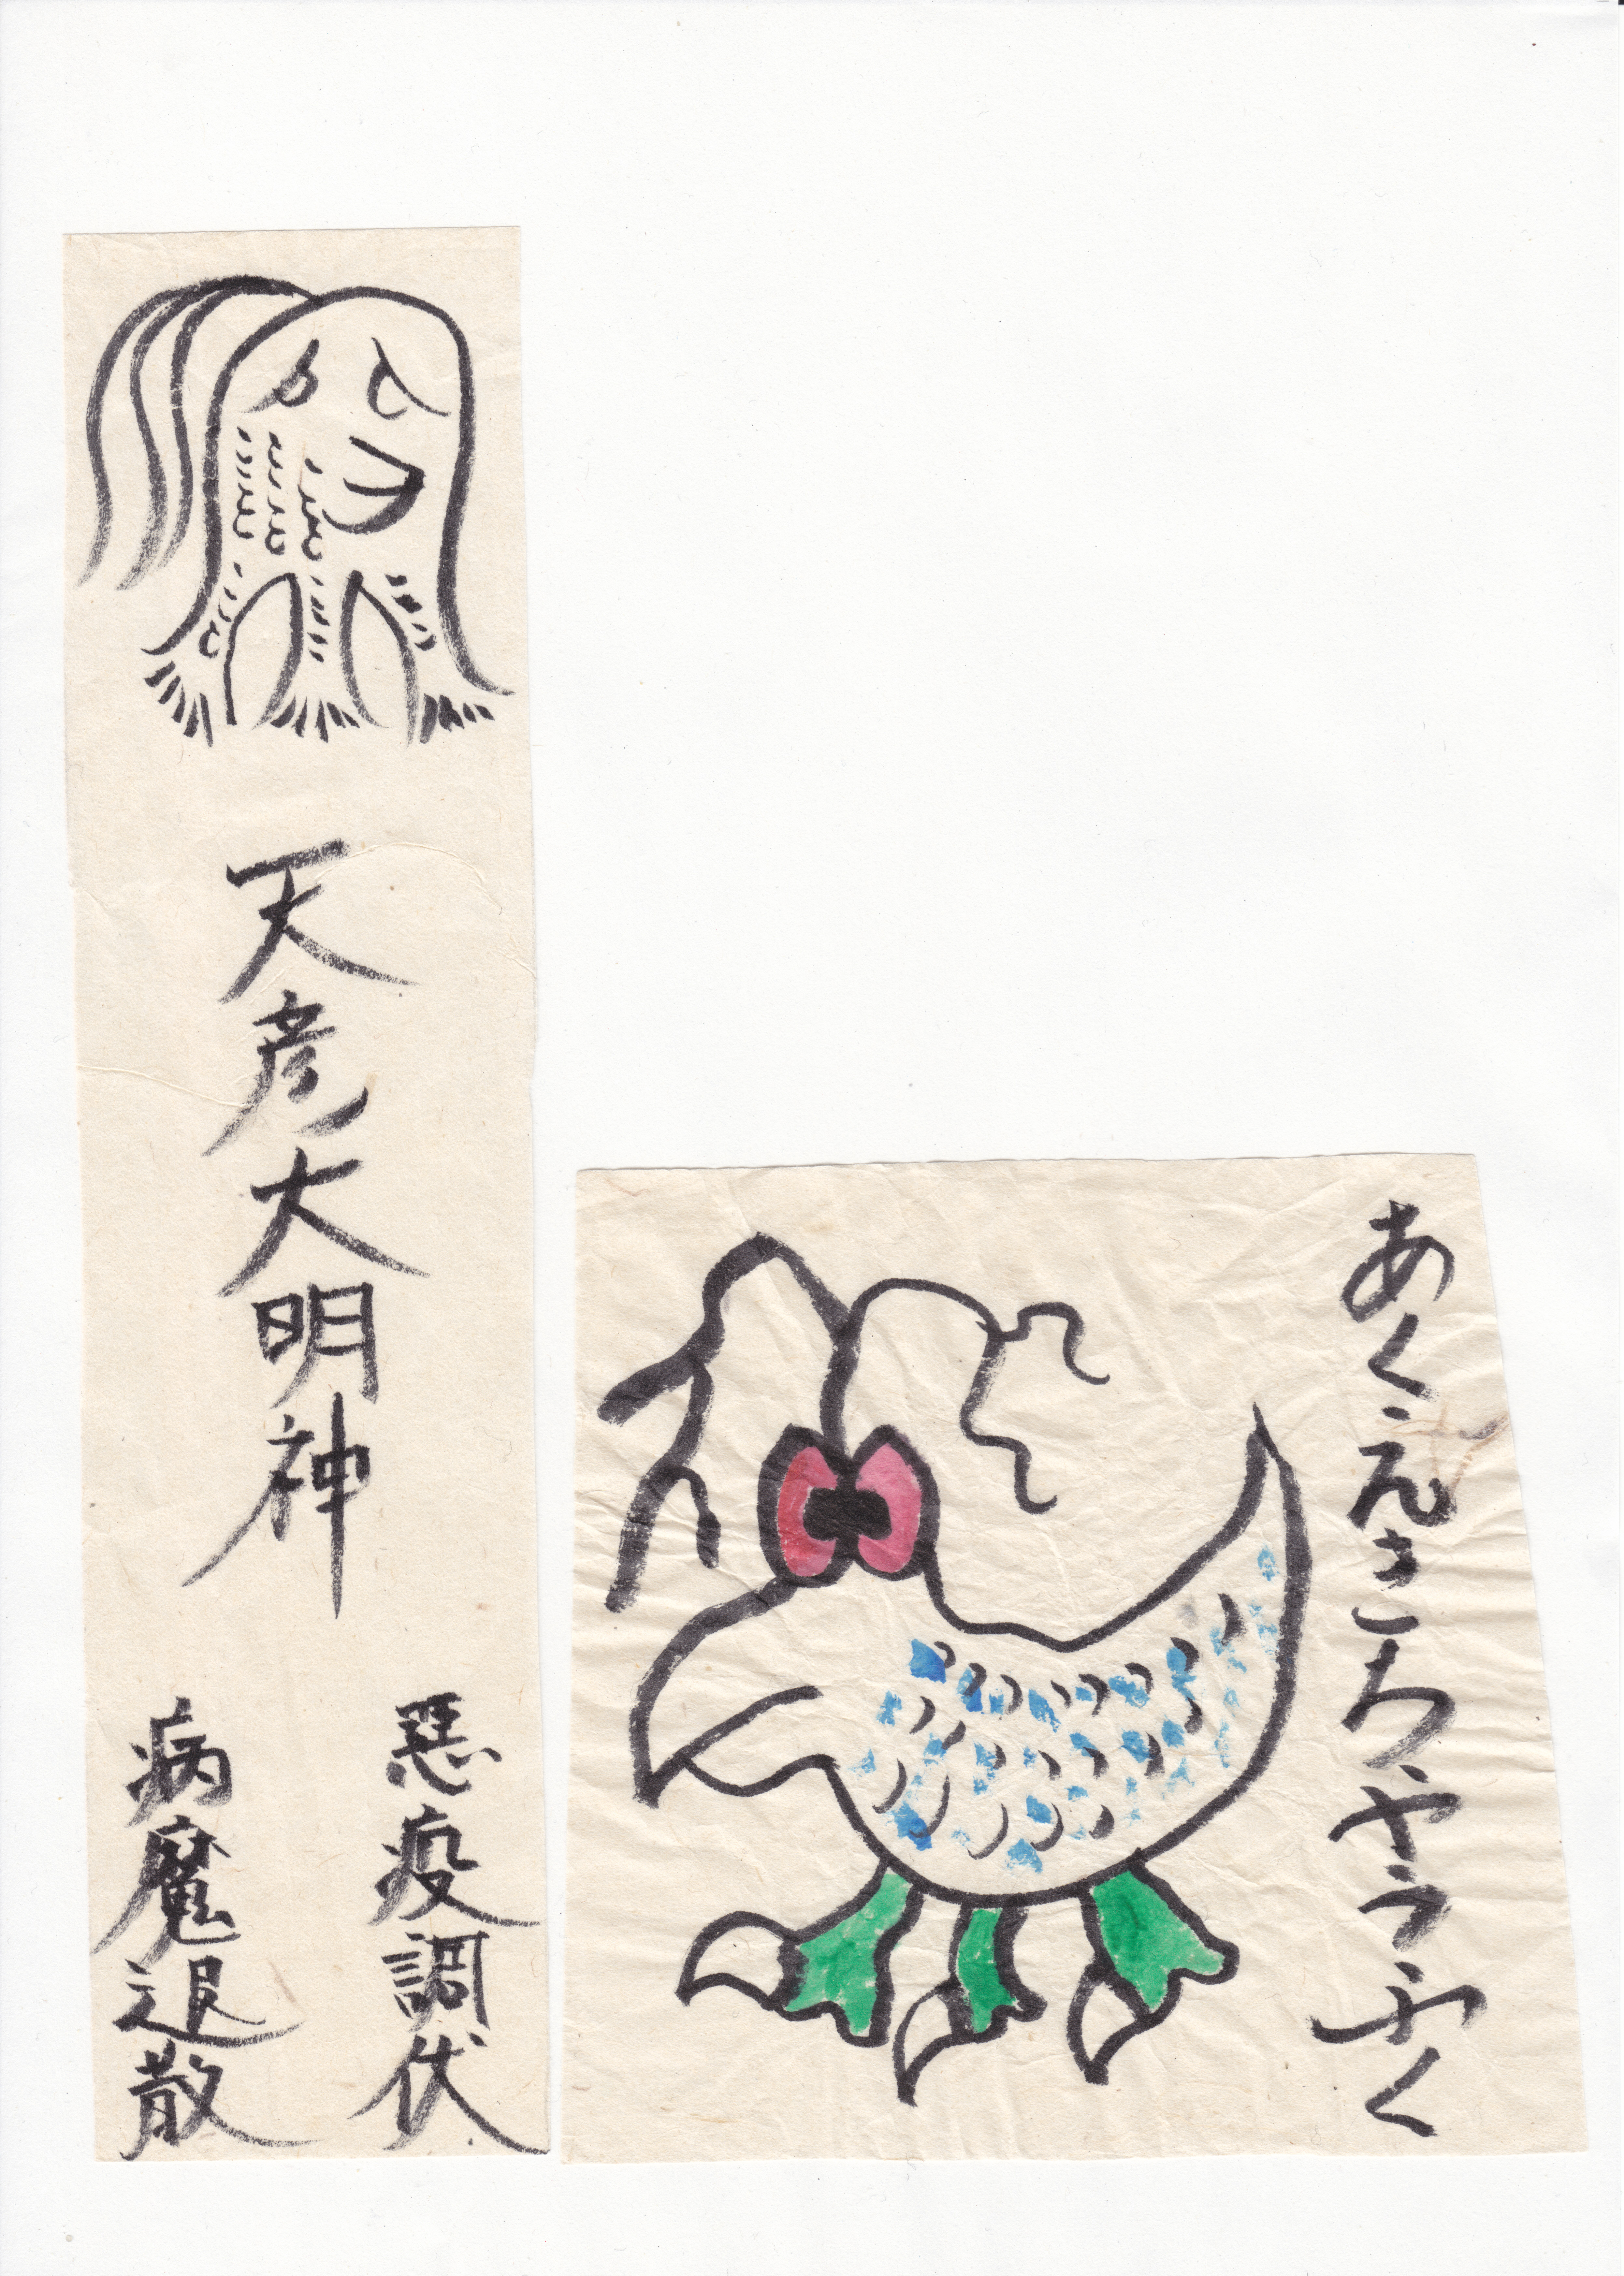 天彦大明神
悪疫調伏
病魔退散
あくえきちやうふく